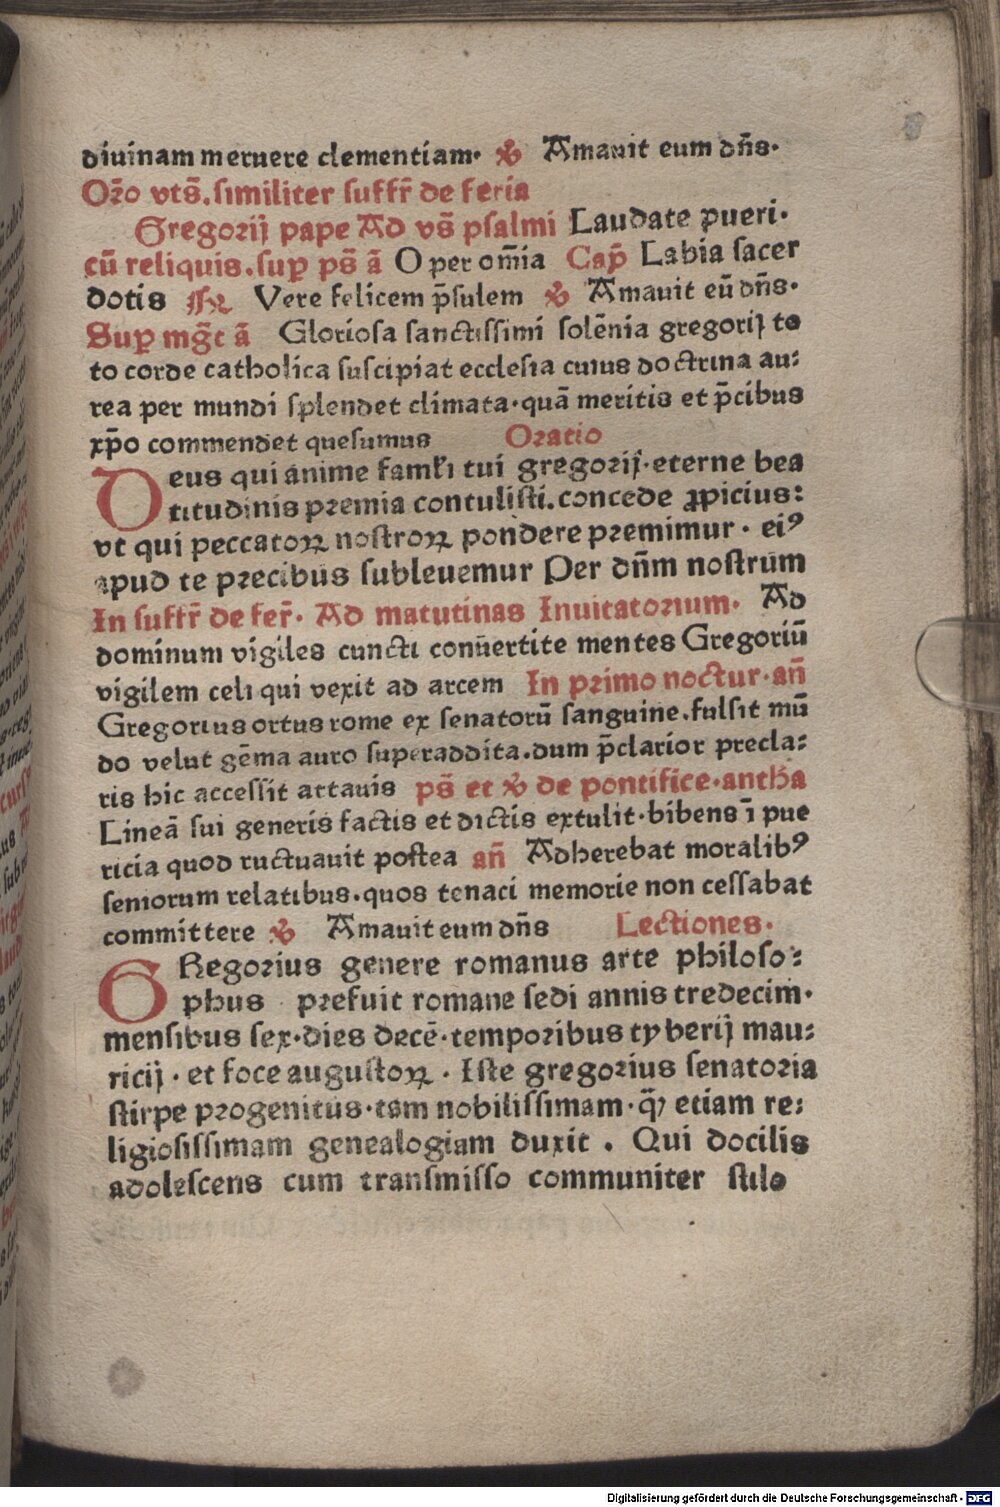 diuinam meruere clementiam· ℣ Amauit eum dn̄s·
Or̄o vts̄. similiter suffr̄ de feria
Gregorij pape Ad vs̄ psalmi Laudate pueri·
cū reliquis. suꝑ ps̄ ā O per om̄ia Cap̄ Labia sacer
dotis Vere felicem p̄sulem ℣ Amauit eū dn̄s·
Suꝑ mgc̄t ā Gloriosa sanctissimi solēnia gregorij to
to corde catholica suscipiat ecclesia cuius doctrina au:
rea per mundi splendet climata·quā meritis et p̄cibus
xp̄o commendet quesumus Oratio
Deus qui anime famłi tui gregorij·eterne bea
titudinis premia contulisti. concede ꝓpicius:
vt qui peccatoꝝ nostroꝝ pondere premimur· eiꝰ
apud te precibus subleuemur Per dn̄m nostrum
In suffr̄ de fer̄· Ad matutinas Inuitatorium· Ad
dominum vigiles cuncti conuertite mentes Gregoriū
vigilem celi qui vexit ad arcem In primo noctur·an̄
Gregorius ortus rome ex senatorū sanguine. fulsit mū
do velut gēma auro superaddita.dum p̄clarior precla:
ris hic accessit attauis ps̄ et ℣ de pontifice·antħa
Lineā sui generis factis et dictis extulit·bibens ī pue
ricia quod ructuauit postea an̄ Adherebat moralibꝰ
seniorum relatibus.quos tenaci memorie non cessabat
committere ℣ Amauit eum dn̄s Lectiones·
GRegorius genere romanus arte philoso:
phus prefuit romane sedi annis tredecim·
mensibus sex·dies decē·temporibus tyberij mau:
ricij· et foce augustoꝝ· Iste gregorius senatoria
stirpe progenitus·tam nobilissimam·q̄ꝫ etiam re:
ligiosissimam genealogiam duxit . Qui docilis
adolescens cum transmisso communiter stilo
Digitalisierung gefördert durch die Deutsche Forschungsgemeinschaft - DFG